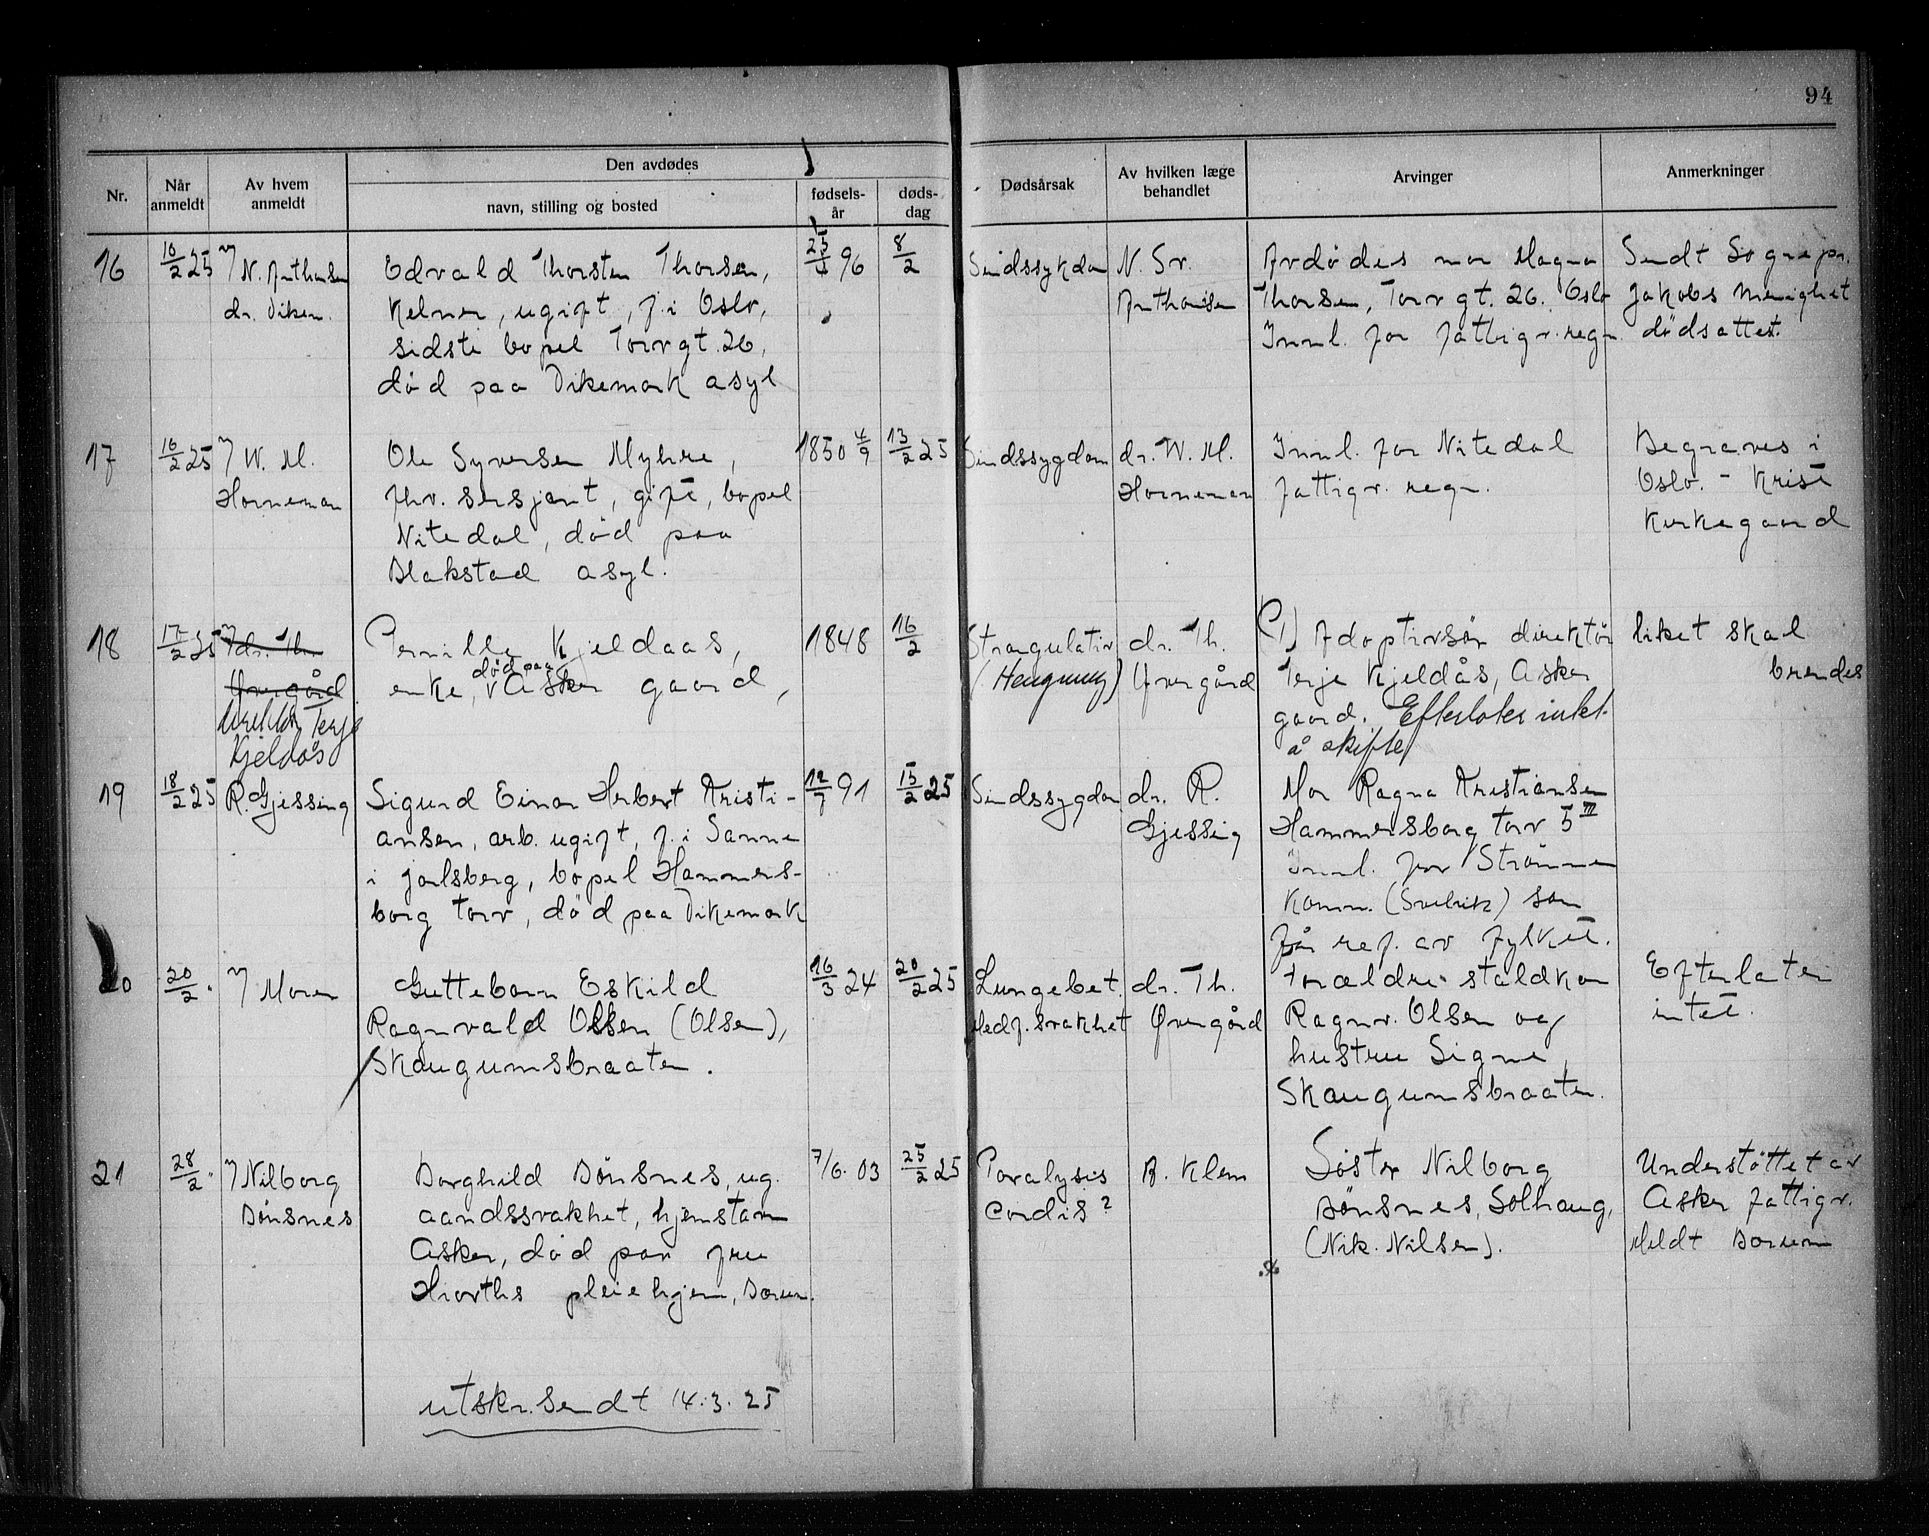 94
Nr.
Når anmeldt
Av hvem anmeldt
Den avdødes
navn, stilling og bosted
fødsels-år
døds-dag
Dødsårsak
Av hvilken læge behandlet
Arvinger
Anmerkninger
16
10/2 25
N. Anthonisen
dr. Diken.
Edvald Thorsten Thorsen,
Kelner, ugift, f. i Oslo,
sidste bopel Torvgt. 26,
død paa Dikemark asyl
25/4 96
8/2
Sindssykdom
N. Sv.
Anthonisen
Avdødes mor Magna
Thorsen, Torvgt. 26. Oslo
Innl. for fattigv. regn.
Sendt Sognepr.
Jakobs menighet
dødsattest.
17
16/2 25
W. M.
Horneman
Ole Syversen Myhre,
fhv. sersjant, gift, bopel
Nitedal, død paa
Blakstad asyl.
1850 4/9
13/2 25
Sindssygdom
dr. W. M.
Horneman
Innl. for Nitedal
fattigv. regn.
Begraves i
Oslo. - Krist
Kirkegaard
18
17/2 25
dr. Th.
Øvergård
Direktør Terje
Kjeldås
Pernille Kjeldaas,
enke, død paa Asker gaard,
1848
16/2
Strangulatio
(Hengning)
dr. Th.
Øvergård
Adoptivsøn direktør
Terje Kjeldås, Asker
gaard. Efterlater intet
å skifte
liket skal
brendes
19
18/2 25
R. Gjessing
Sigurd Einar Herbert Kristi-
ansen, arb. ugift, f. i Sanne
i Jarlsberg, bopel Hammers-
borg torv, død paa Dikemark
12/7 91
15/2 25
Sindssygdom
dr. R.
Gjessing
Mor Ragna Kristiansen
Hammersborg torv 5 III
Innl. for Strømm
Komm. (Svelvik) som
får ref. av fylket.
20
20/2.
Moren
Guttebarn Eskild
Ragnvald Olsen (Olsen),
Skaugumsbraaten.
16/3 24
20/2 25
Lungebet.
Medf. svakhet
dr. Th.
Øvergård
Forældre staldkar
Ragnv. Olsen og
hustru Signe,
Skaugumsbraaten.
Efterlater
intet.
21
28/2.
Nilborg
Bönsnes
Borghild Bönsnes, ug.
aandssvakhet, hjemstavn
Asker, død paa fru
Hiorths pleiehjem, Bærum.
7/6. 03
25/2 25
Paralysis
cordis?
A. Klem
Søster Nilborg
Bönsnes, Solhaug,
(Nik. Nilsen).
Understöttet av
Asker fattigv.
Meldt Bærum
utskr. sendt 14.3.25